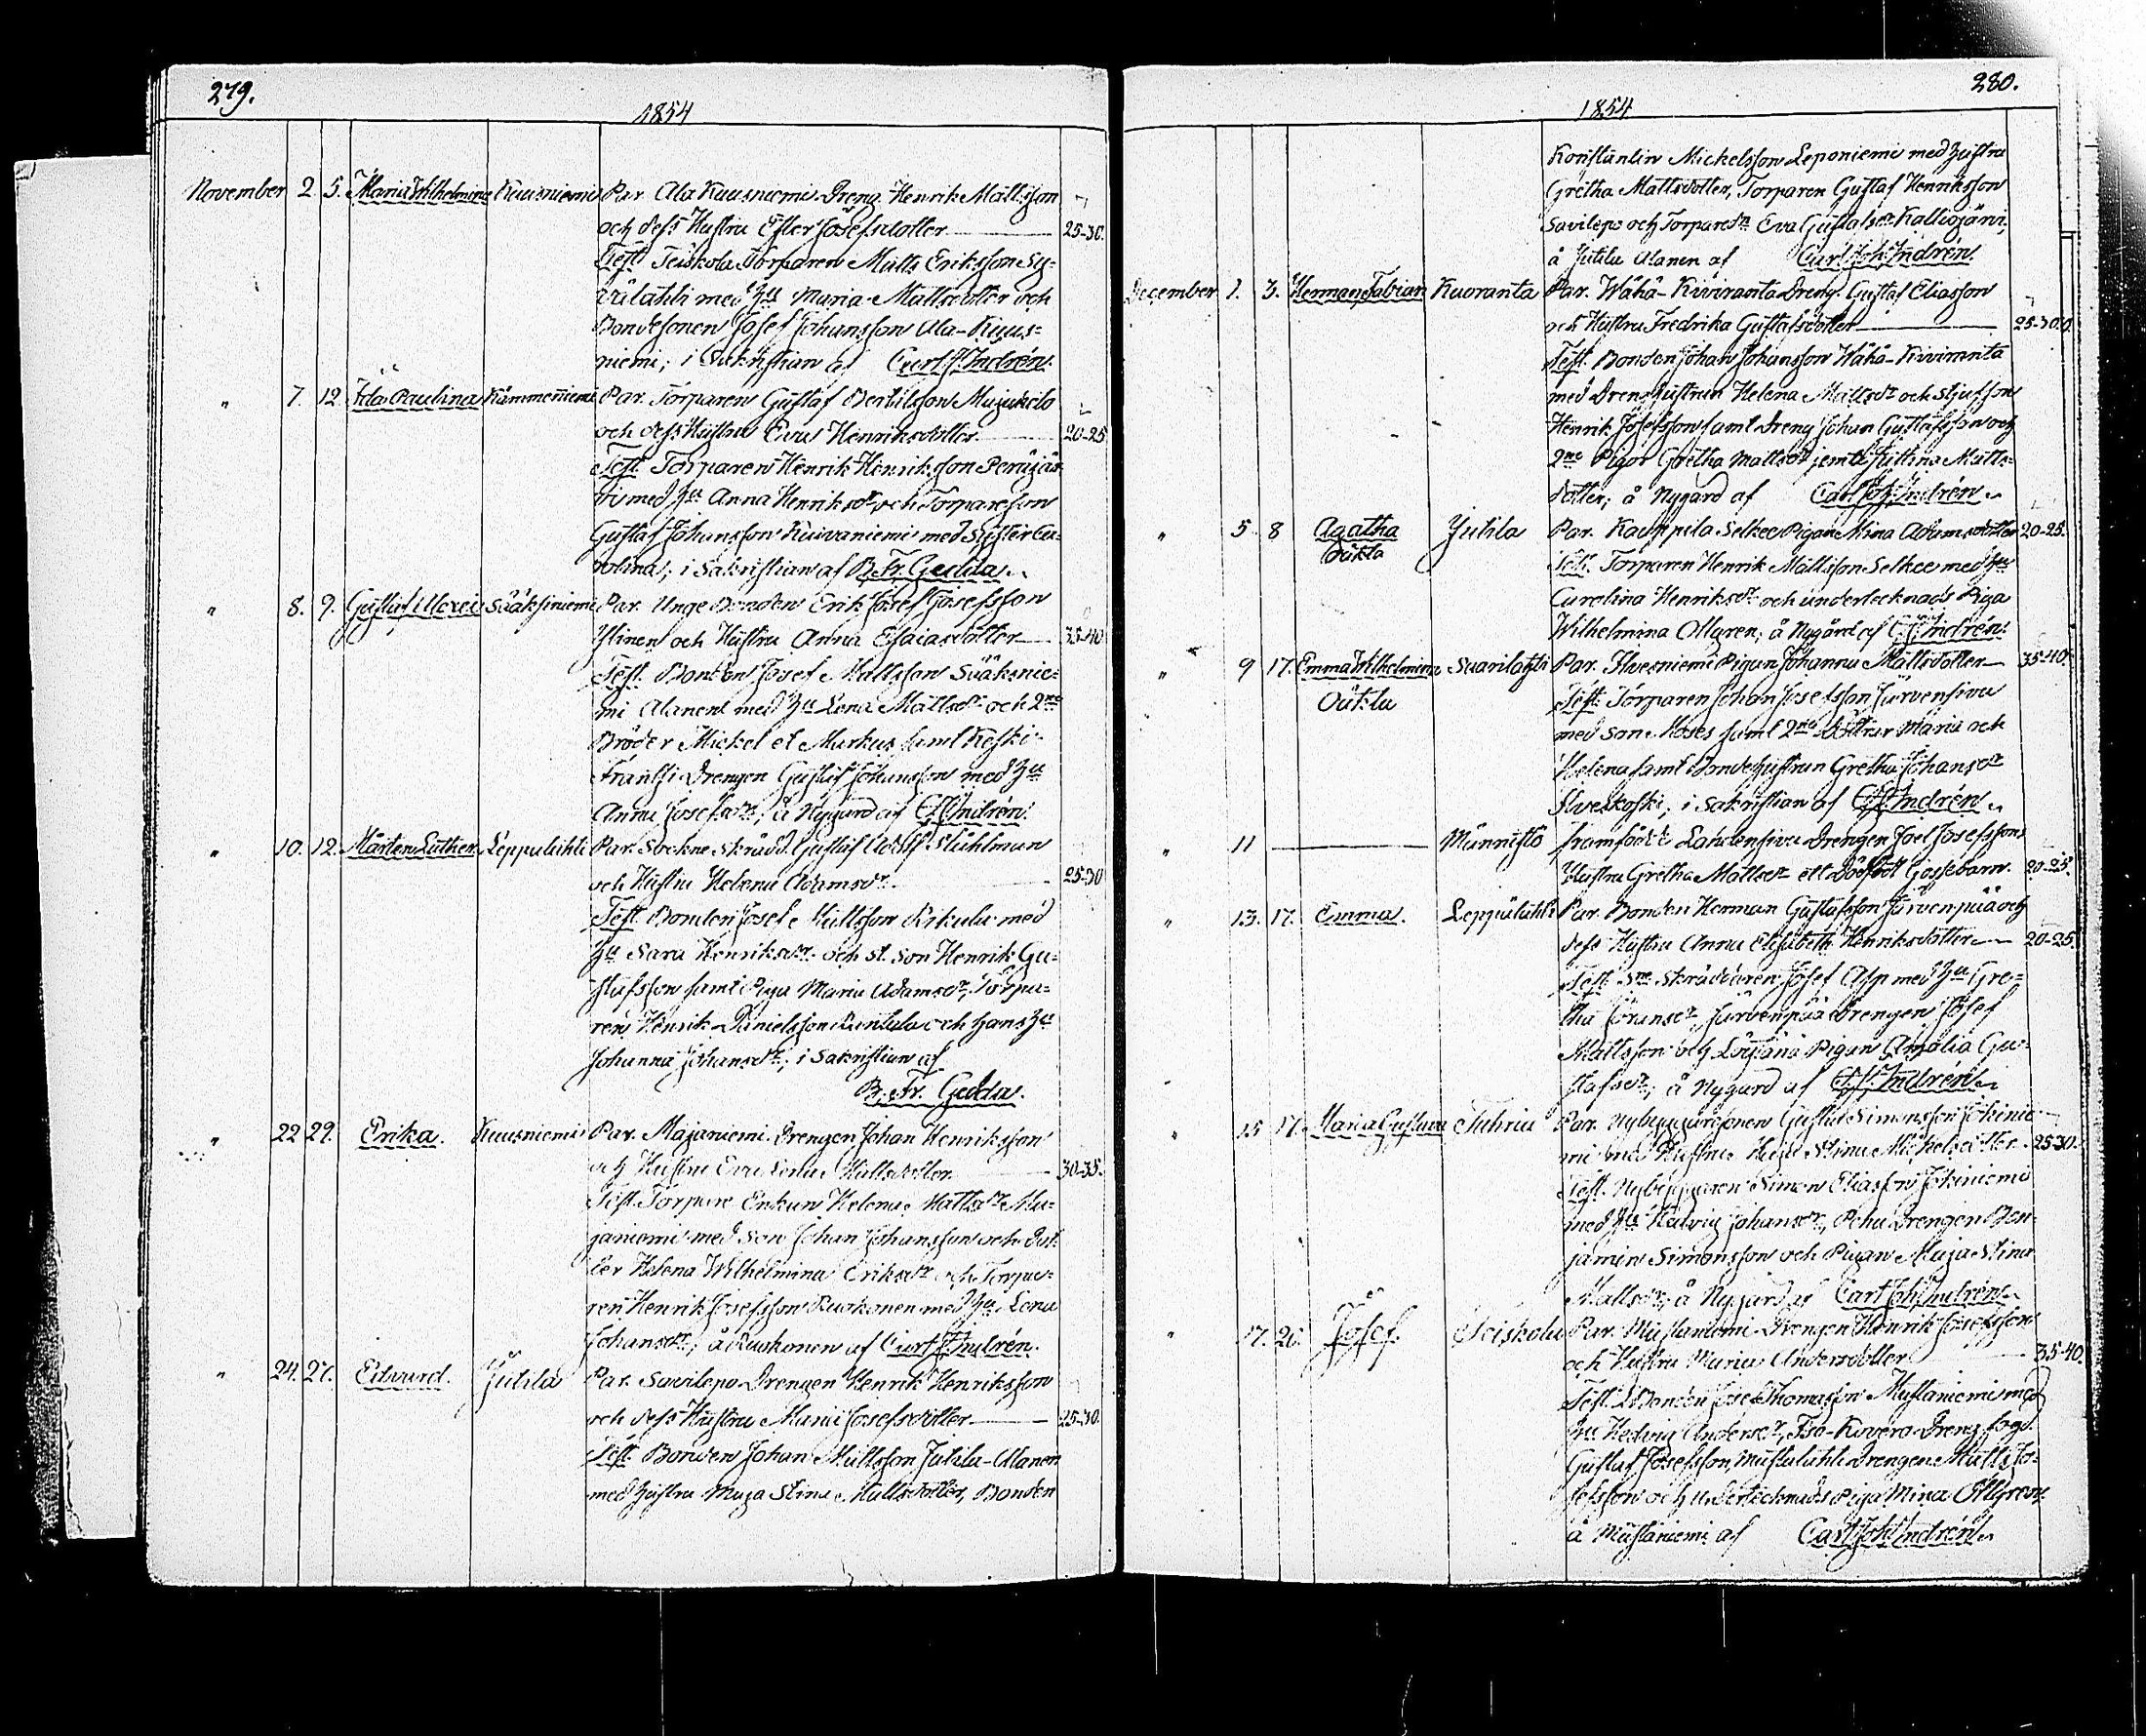 279.
1854
November 2. 5. Maria Wilhelmina Kuusniemi Par. Ala Kuusniemi Dreng Henrik Mattsson
och dess Hustru Ester Josefsdotter 25-30.
Test. Teiskola Torparen Matts Eriksson Sy-
välahti med Hu Maria Mattsdotter och
Bondesonen Josef Johansson Ala-Kuus-
niemi; i Sakristian af Carl J. Indrén.
" 7. 12. Ida Paulina Kämmenniemi Par. Torparen Gustaf Bertilsson
och dess Hustru Eva Henriksdotter 20-25
Test. Torparen Henrik Henriksson Peräjär-
vi med Hu Anna Henriksdr och Torpareson
Gustaf Johansson Kuivaniemi med Syster Ca-
rolina; i Sakristian af B. Fr. Gedda.
" 8. 9. Gustaf Alexei Sääksniemi Par. Unge Bonden Erik Josef Josefsson
Ylinen och Hustru Anna Esaiasdotter 35-40
Test. Bonden Josef Mattsson Sääksnie-
mi Alanen med Hu Lena Mattsdr och 2ne
Bröder Mickel et Markus samt Keski-
Frantsi Drengen Gustaf Johansson med Hu
Anna Josefsdr; å Nygård af C. J. Indrén.
" 10. 12. Mårten Luther Leppälahti Par. Sockne Skrädd. Gustaf Adolf Ståhlman
och Hustru Helena Adamsdr. 25-30
Test. Bonden Josef Mattsson Rikala med
Hu Sara Henriksdr och st. son Henrik Gu-
stafsson samt Piga Maria Adamsdr, Torpa-
ren Henrik Danielsson Rantala och hans Hu
Johanna Johansdr; i Sakristian af
B. Fr. Gedda.
" 22 29. Erika. Kuusniemi Par. Majaniemi Drengen Johan Henriksson
och Hustru Eva Lena Mattsdotter 30-35.
Test. Torpare Enkan Helena Mattsdr Ma-
janiemi med son Johan Johansson och dot-
ter Helena Wilhelmina Eriksdr och Torpa-
ren Henrik Josefsson Ruokonen med Hu Lena
Johansdr; å Ruokonen af Carl J. Indrén.
" 24. 27. Edvard. Jutila Par. Savilepo Drengen Henrik Henriksson
och dess Hustru Maria Josefsdotter 25-30.
Test. Bonden Johan Mattsson Jutila-Alanen
med hustru Maja Stina Mattsdotter, Bonden
280.
1854
Konstantin Mickelsson Leponiemi med hustru
Gretha Mattsdotter, Torparen Gustaf Henriksson
Savilepo och Torparedr Eva Gustafsdr Kalliojärvi,
å Jutila Alanen af Carl Joh. Indrén.
December 1. 3. Herman Fabian Kuoranta Par. Wähä-Kiviranta Dreng. Gustaf Eliasson
och Hustru Fredrika Gustafsdotter 25-30.
Test. Bonden Johan Johansson Wähä-Kiviranta
med Drenghustrun Helena Mattsdr och styfson
Henrik Josefsson samt Dreng Johan Gustafsson och
2ne Pigor Gretha Mattsdr jemte Justina Matts-
dotter; å Nygård af Carl Joh. Indrén.
" 5 8 Agatha Jutila Par. Kauppila Selkee Pigan Mina Adamsdotter 20-25.
Oäkta Test. Torparen Henrik Mattsson Selkee med Hu
Carolina Henriksdr och undertecknads Piga
Wilhelmina Ollgren; å Nygård af C. J. Indrén.
" 9 17. Emma Wilhelmina Suarilahti Par. Ilvesniemi Pigan Johanna Mattsdotter 35-40.
Oäkta Test. Torparen Johan Josefsson Järvensivu
med son Moses samt 2ne döttrar Maria och
Helena samt Bondehustrun Gretha Johansdr
Ilveskoski; i Sakristian af C. J. Indrén.
" 11 Männistö framfödde Lahdensivu Drengen Joel Josefssons
Hustru Gretha Mattsdr ett dödfödt Gossebarn. 20-25.
" 13. 17. Emma. Leppälahti Par. Bonden Herman Gustafsson Järvenpää och
dess Hustru Anna Elisabeth Henriksdotter 20-25.
Test. Sne Skräddaren Josef Asp med Hu Gre-
tha Göransdr, Järvenpää Drengen Josef
Mattsson och Pigan Amalia Gu-
stafsdr; å Nygård af C. J. Indrén.
" 15 17. Maria Gustava Tuhria Par. Nybyggaresonen Gustaf Simonsson Jokinie-
mi med Hustru Maja Stina Mickelsdotter. 25-30.
Test. Nybyggaren Simon Eliasson Jokiniemi
med Hu Hedvig Johansdr, Pohu Drengen Ben-
jamin Simonsson och Pigan Maja Stina
Mattsdr; å Nygård af Carl Joh. Indrén.
" 17. 26. Josef. Teiskola Par. Mustaniemi Drengen Henrik Josefsson
och Hustru Maria Andersdotter 35-40.
Test. Bonden Josef Thomasson Mustaniemi med
Hu Hedvig Andersdr, Iso-Kovera Dreng fogd.
Gustaf Josefsson, Mustalahti Drengen Matts Jo-
sefsson och undertecknads Piga Mina Ollgren;
å Mustaniemi af Carl Joh. Indrén.